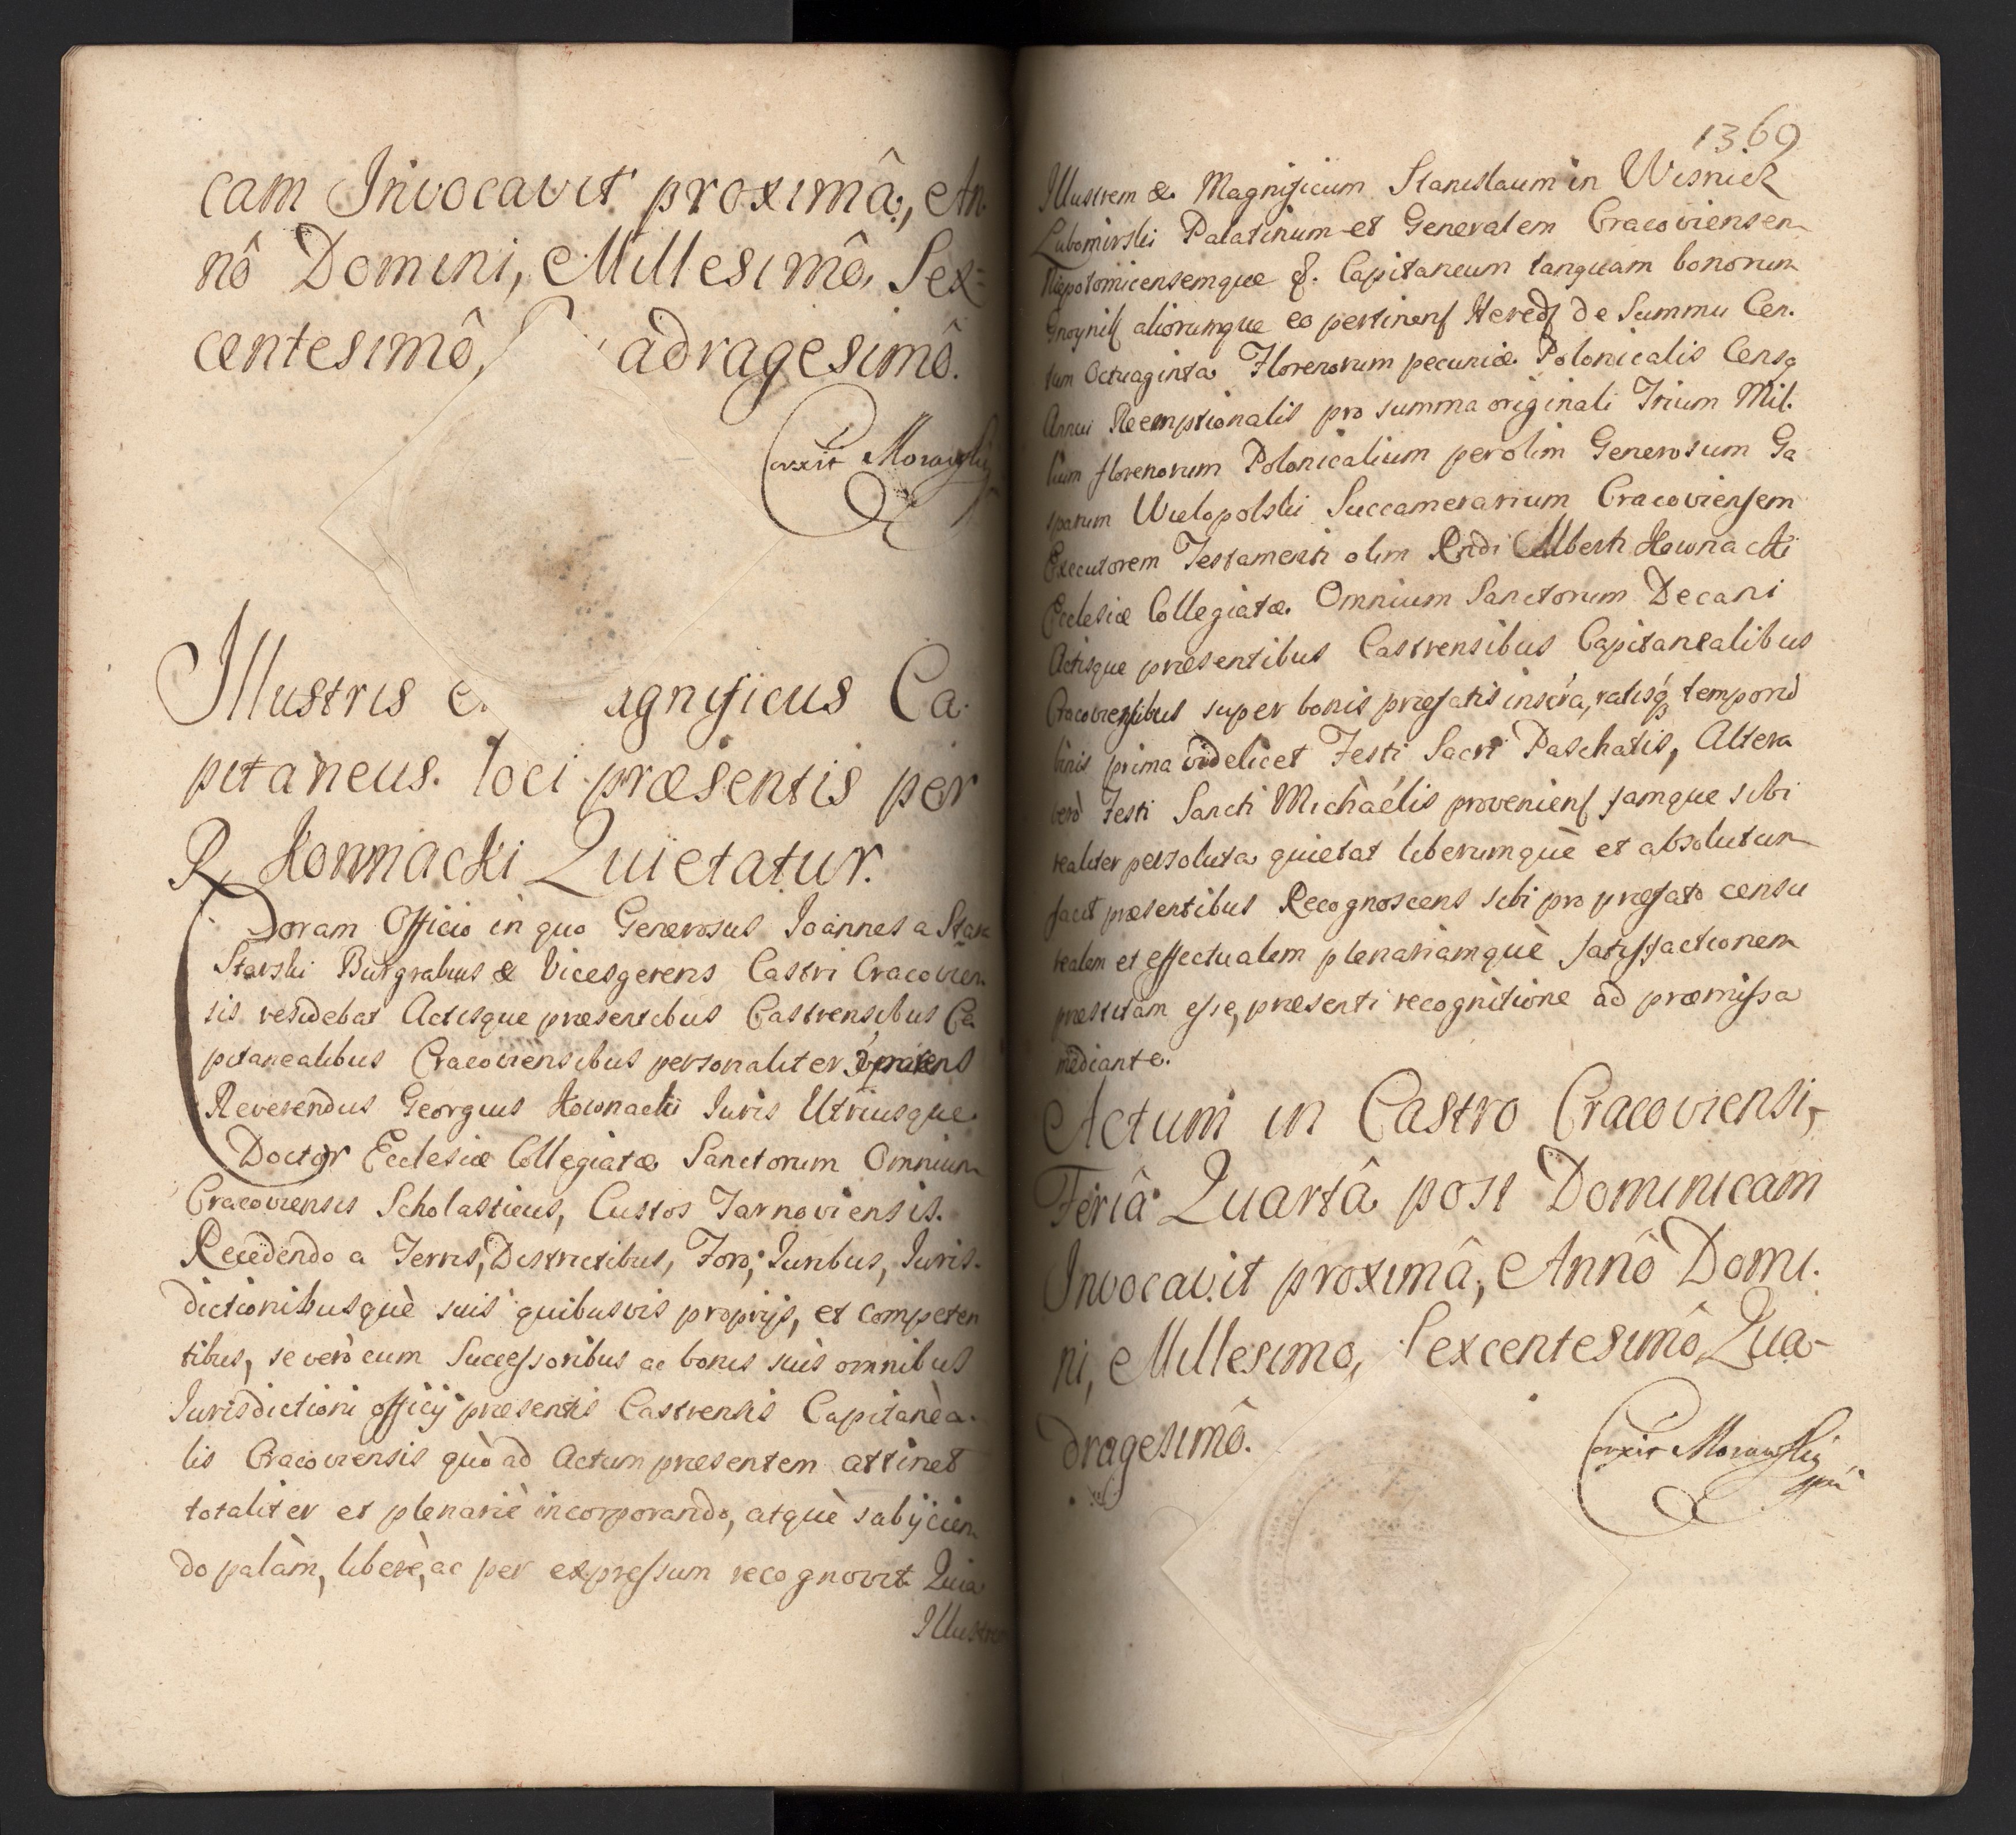 cam Invocavit proximâ, An
nô Domini, Millesimô, Sex=
centesimô, adragesimô.
Corrxit Morawski
Illustris e agnificus Ca-
pitaneus loci præsentis per
R. Hownacki Quietatur.
Coram Officio in quo Generosus Joannes a Stara
Starski Burgrabius & Vicesgerens Castri Cracovien
sis residebat Actisque præsentibus Castrensibus Ca
pitanealibus Cracoviensibus personaliter
Reverendus Georgius Hownacki Juris Utriusque
Doctor Ecclesiæ Collegiatæ Sanctorum Omnium
Cracoviensis Scholasticus, Custos Tarnoviensis.
Recedendo a Terris, Districtibus, Foro, Juribus, Juris-
dictionibusquè suis quibusvis proprijs, et competen
tibus, se verò cum Successoribus ac bonis suis omnibus
Jurisdictioni officij præsentis Castrensis Capitanèa-
lis Cracoviensis quò ad Actum præsentem attinet
totaliter et plenariè incorporando, atquè subijcien
do palàm, liberè, ac per expressum recognovit Quia
Illustrem
1369
Illustrem & Magnificum Stanislaum in Wisnicz
Lubomirski Palatinum et Generalem Cracoviensem
Niepolomicensemque &. Capitaneum tanquam bonorum
aliorumque eo pertinens Hered de Summa Cen-
tum Octuaginta Florenorum pecuniæ Polonicalis Censq
Annui Reemptionalis pro summa originali Trium Mil-
lium florenorum Polonicalium per olim Generosum Ga
sparum Wielopolski Succamerarium Cracoviensem
Executorem Testamenti olim Rndi Alberti Hownacki
Ecclesiæ Collegiatæ Omnium Sanctorum Decani
Actisque præsentibus Castrensibus Capitanealibus
Cracoviensibus super bonis præfatis inscra, ratisq temporis
binis prima videlicet Festi Sacri Paschatis, Altera
verò Festi Sancti Michàélis proveniens jamque sibi
realiter persoluta quietat liberumquè et absolutum
facit præsentibus Recognoscens sibi pro præfato censu
realem et effectualem plenariamquè satisfactionem
præstitam esse, præsenti recognitione ad præmissa
mediante.
Actum in Castro Cracoviensi,
Feriâ Quartâ post Dominicam
Invocavit proximâ, Annô Domi-
ni, Millesimo, Sexcentesimô Qua-
dragesimô.
Corrxit Morawski